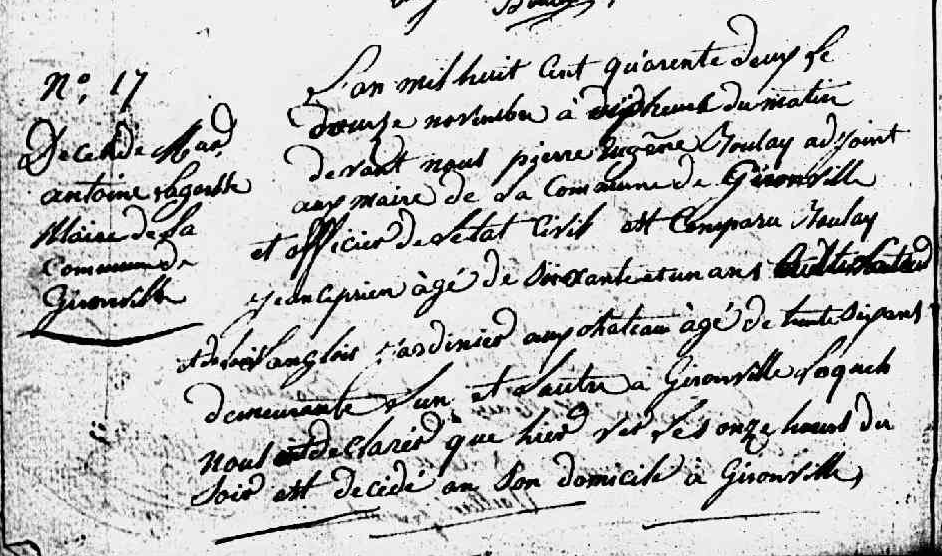 N.° 17
Deces de Mard
antoine
Maire de la
Commune de
Gironville
L'an mil huit Cent quarente deux le
douze novembre à dix heures du matin
devant nous pierre Eugène Boulay adjoint
aux maire de la Commune de Gironville
et officier de l'etat Civil est Comparu Boulay
jean Ciprien àgé de soixante et un ans
et Langlois jardinier aux chateau àgé de trente six ans
demeurante l'un et l'autre a Gironville lequels
nous ont declarés que hier ver les onze heures du
soir est decédé an son domicile à Gironville,